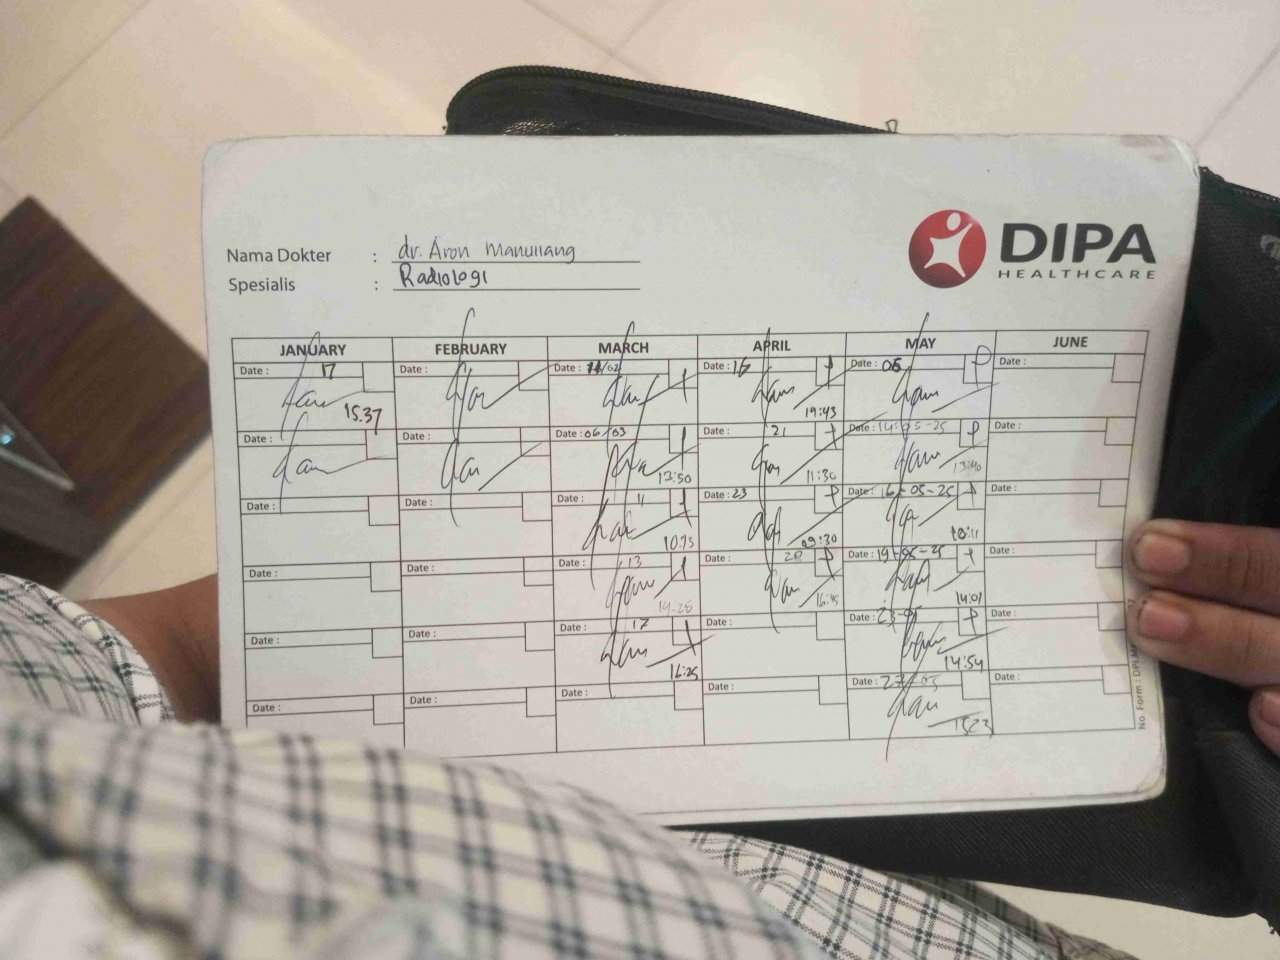 DIPA
HEALTHCARE
Nama Dokter : dr. Aron Manullang
Spesialis : Radiologi
JANUARY FEBRUARY MARCH APRIL MAY JUNE
Date : 17 Date : Date : Date : 16 Date : 05 Date :
15.37 19:43
Date : Date : Date : 06/03 Date : 21 Date : 14-05-25 Date :
13:50 11:30
Date : Date : Date : 11 Date : 23 Date : 16-05-25 Date :
09:30
Date : Date : Date : 13 Date : Date : 19-05-25 Date :
14:28 16:45 14:01
Date : Date : Date : 17 Date : Date : 23-05 Date :
16:25 14:54
Date : Date : Date : Date : Date : Date :
No. Form :